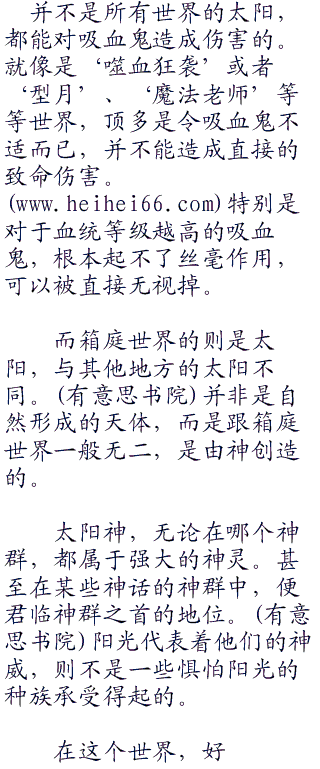 并不是所有世界的太阳，
都能对吸血鬼造成伤害的。
就像是‘噬血狂袭’或者
‘型月’、‘魔法老师’等
等世界，顶多是令吸血鬼不
适而已，并不能造成直接的
致命伤害。
(www.heihei66.com)特别是
对于血统等级越高的吸血
鬼，根本起不了丝毫作用，
可以被直接无视掉。
而箱庭世界的则是太
阳，与其他地方的太阳不
同。(有意思书院)并非是自
然形成的天体，而是跟箱庭
世界一般无二，是由神创造
的。
太阳神，无论在哪个神
群，都属于强大的神灵。甚
至在某些神话的神群中，便
君临神群之首的地位。(有意
思书院)阳光代表着他们的神
威，则不是一些惧怕阳光的
种族承受得起的。
在这个世界，好